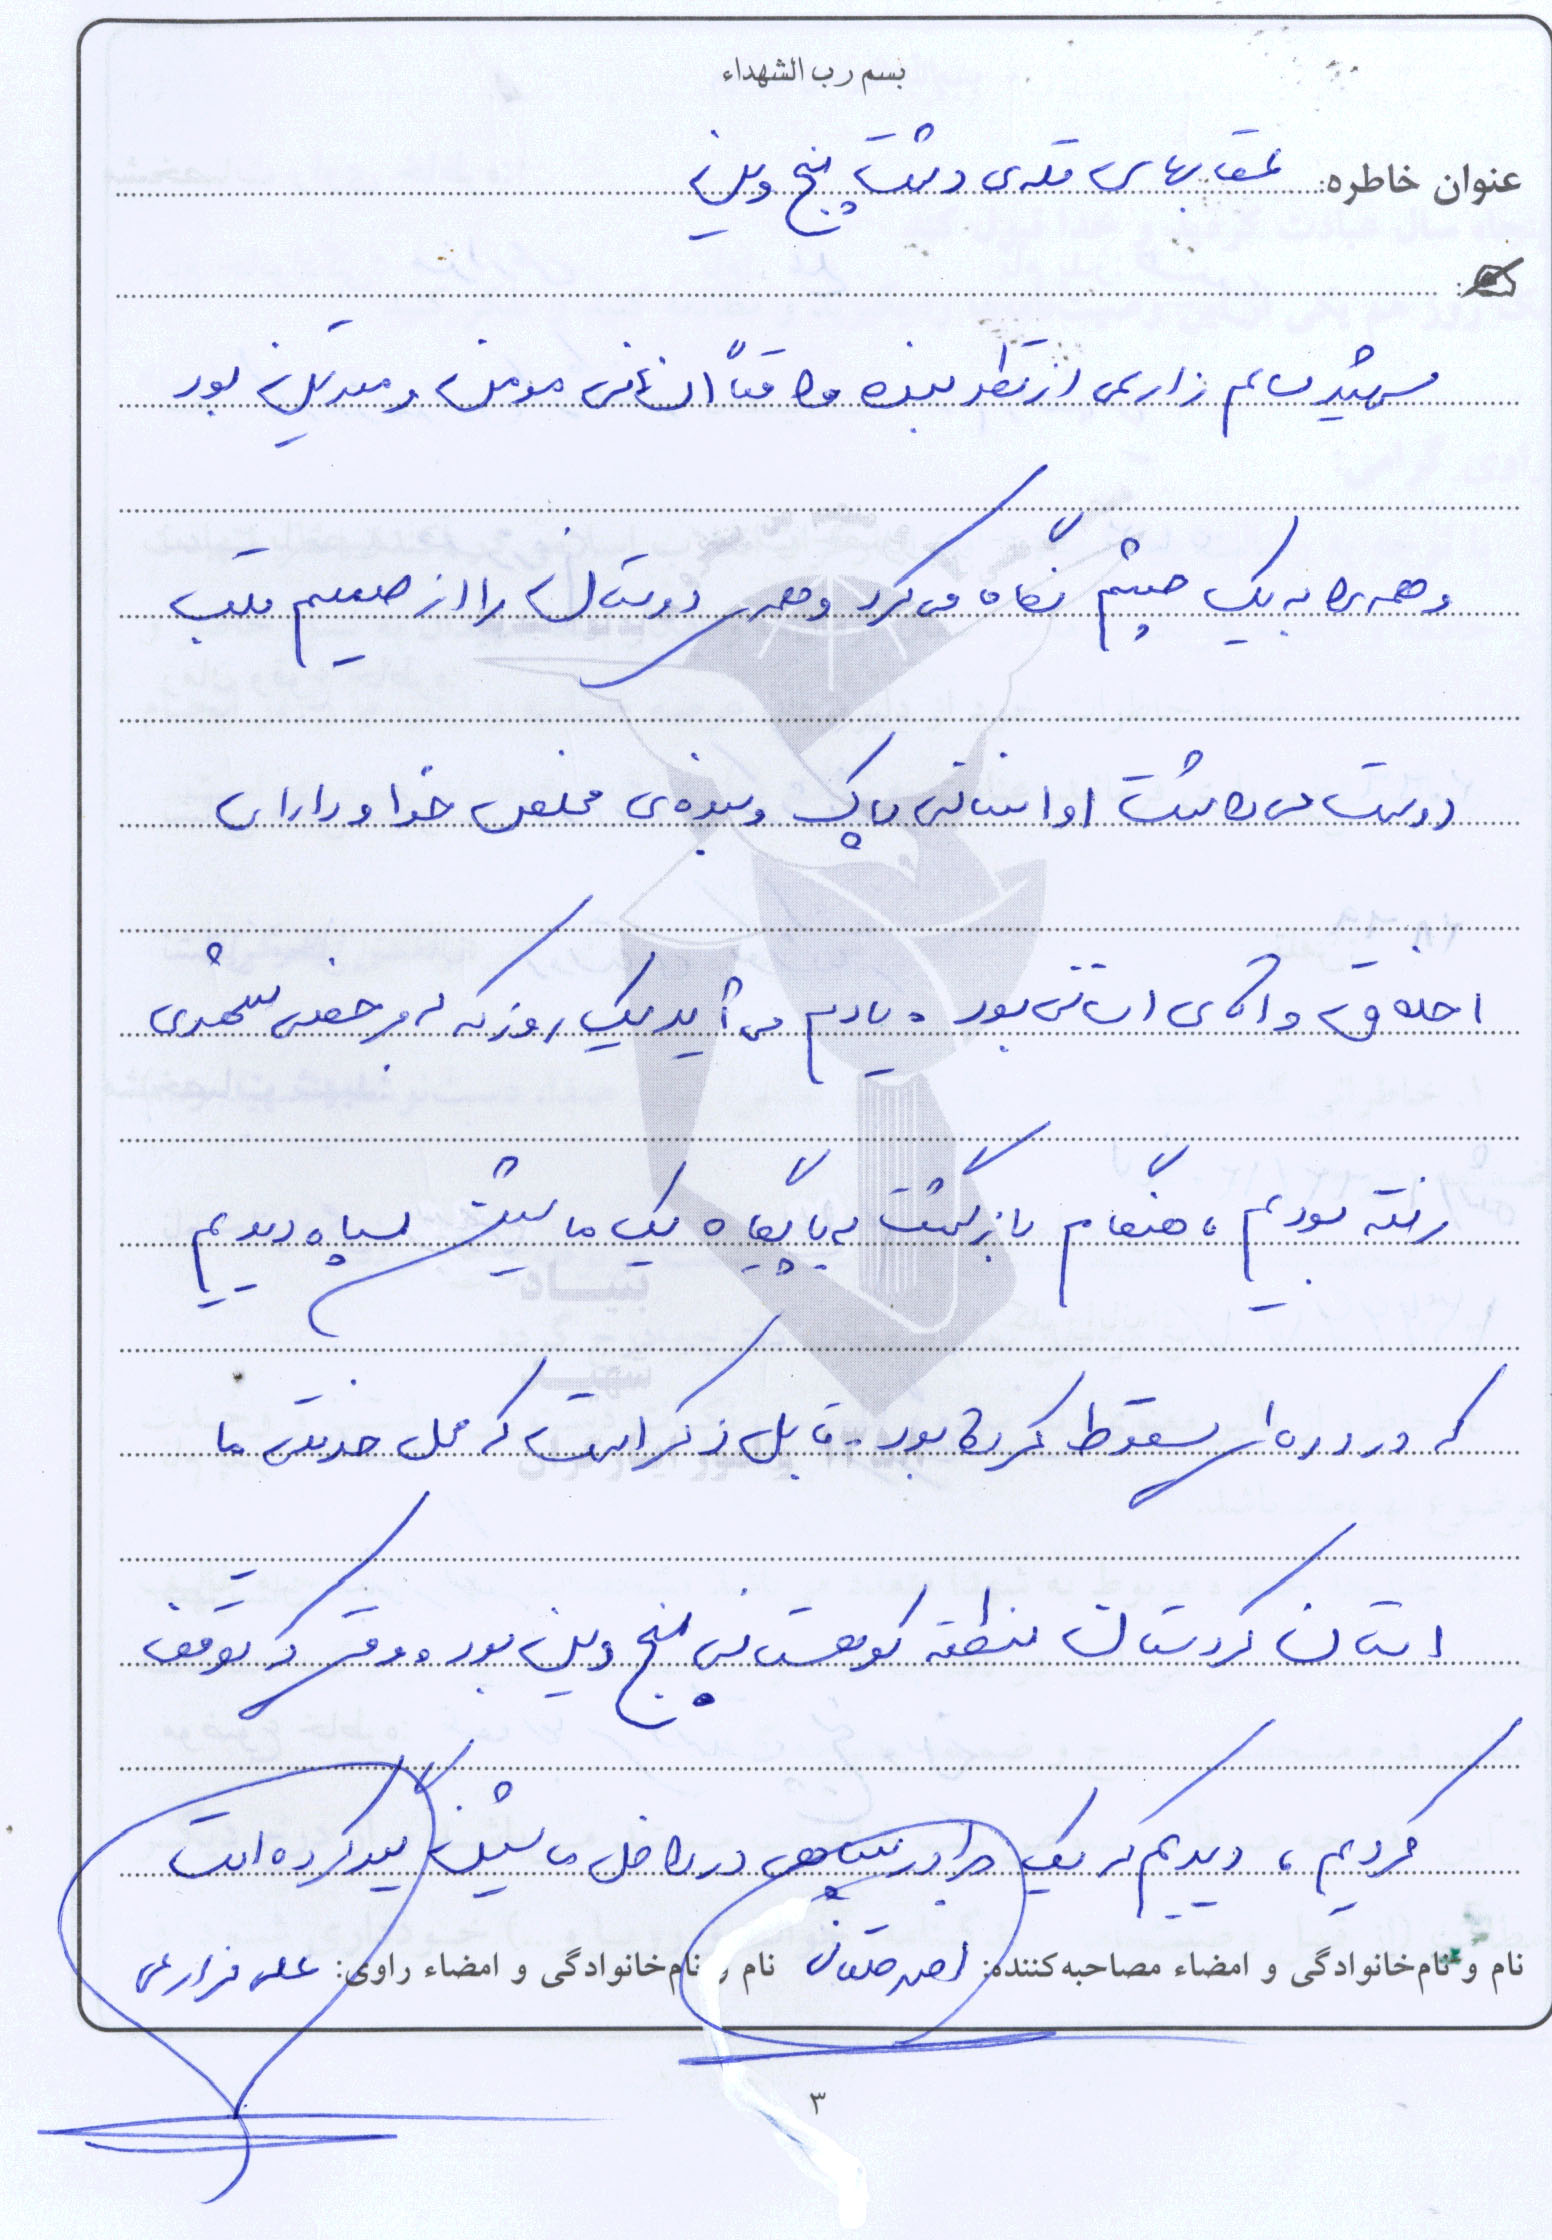 بسم رب الشهداء
عنوان خاطره: عقابهای قله‌ی دشت پنج وین
شهید قاسم زارعی از نظر بنده واقعاً انسانی مومن و متدین بود
و همه را به یک چشم نگاه می کرد و همه ی دوستان را از صمیم قلب
دوست می داشت او انسانی پاک و بنده‌ی مخلص خدا و دارای
اخلاق و انسانی بود. یادم می آید یک روز که به مرخصی شهری
رفته بودیم، هنگام بازگشت به پایگاه یک ماشین سپاه دیدیم
که در دره ای سقوط کرده بود. قابل ذکر است که محل خدمت ما
استان کردستان منطقه کوهستانی پنج وین بود. وقتی که توقف
کردیم، دیدیم که یک برادر سپاهی در داخل ماشین گیر کرده است
نام و نام‌خانوادگی و امضاء مصاحبه‌کننده: نام و نام‌خانوادگی و امضاء راوی: علی زارعی
۳